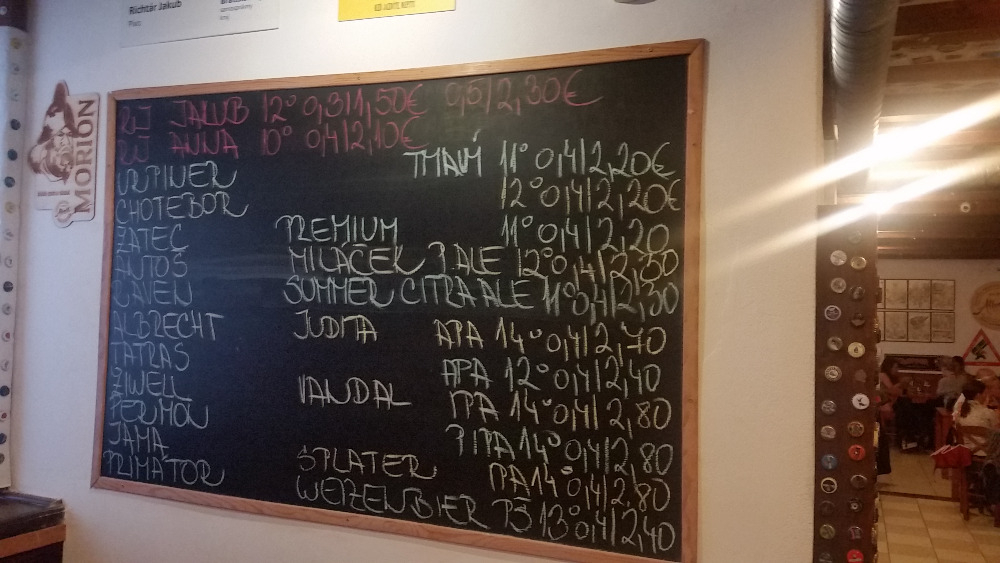 Richtár Jakub
RJ JAKUB 12° 0,3/1,50€ 0,5/2,30€
RJ ANNA 10° 0,4/2,10€
URPINER TMAVÝ 11° 0,4/2,20€
CHOTEBOR 12° 0,4/2,20€
ŽATEC PREMIUM 11° 0,4/2,20
AUTOS MILÁČEK P.ALE 12° 0,4/2,30
RAVEN SUMMER CITRA ALE 11° 0,4/2,30
ALBRECHT JUDITA APA 14° 0,4/2,70
TATRAS APA 12° 0,4/2,40
ZIWELL VANDAL IPA 14° 0,4/2,80
PERMON PIPA 14° 0,4/2,80
JAMA SPLATER IPA 14° 0,4/2,80
PRIMÁTOR WEIZENBIER PS 13° 0,4/2,40
MORION